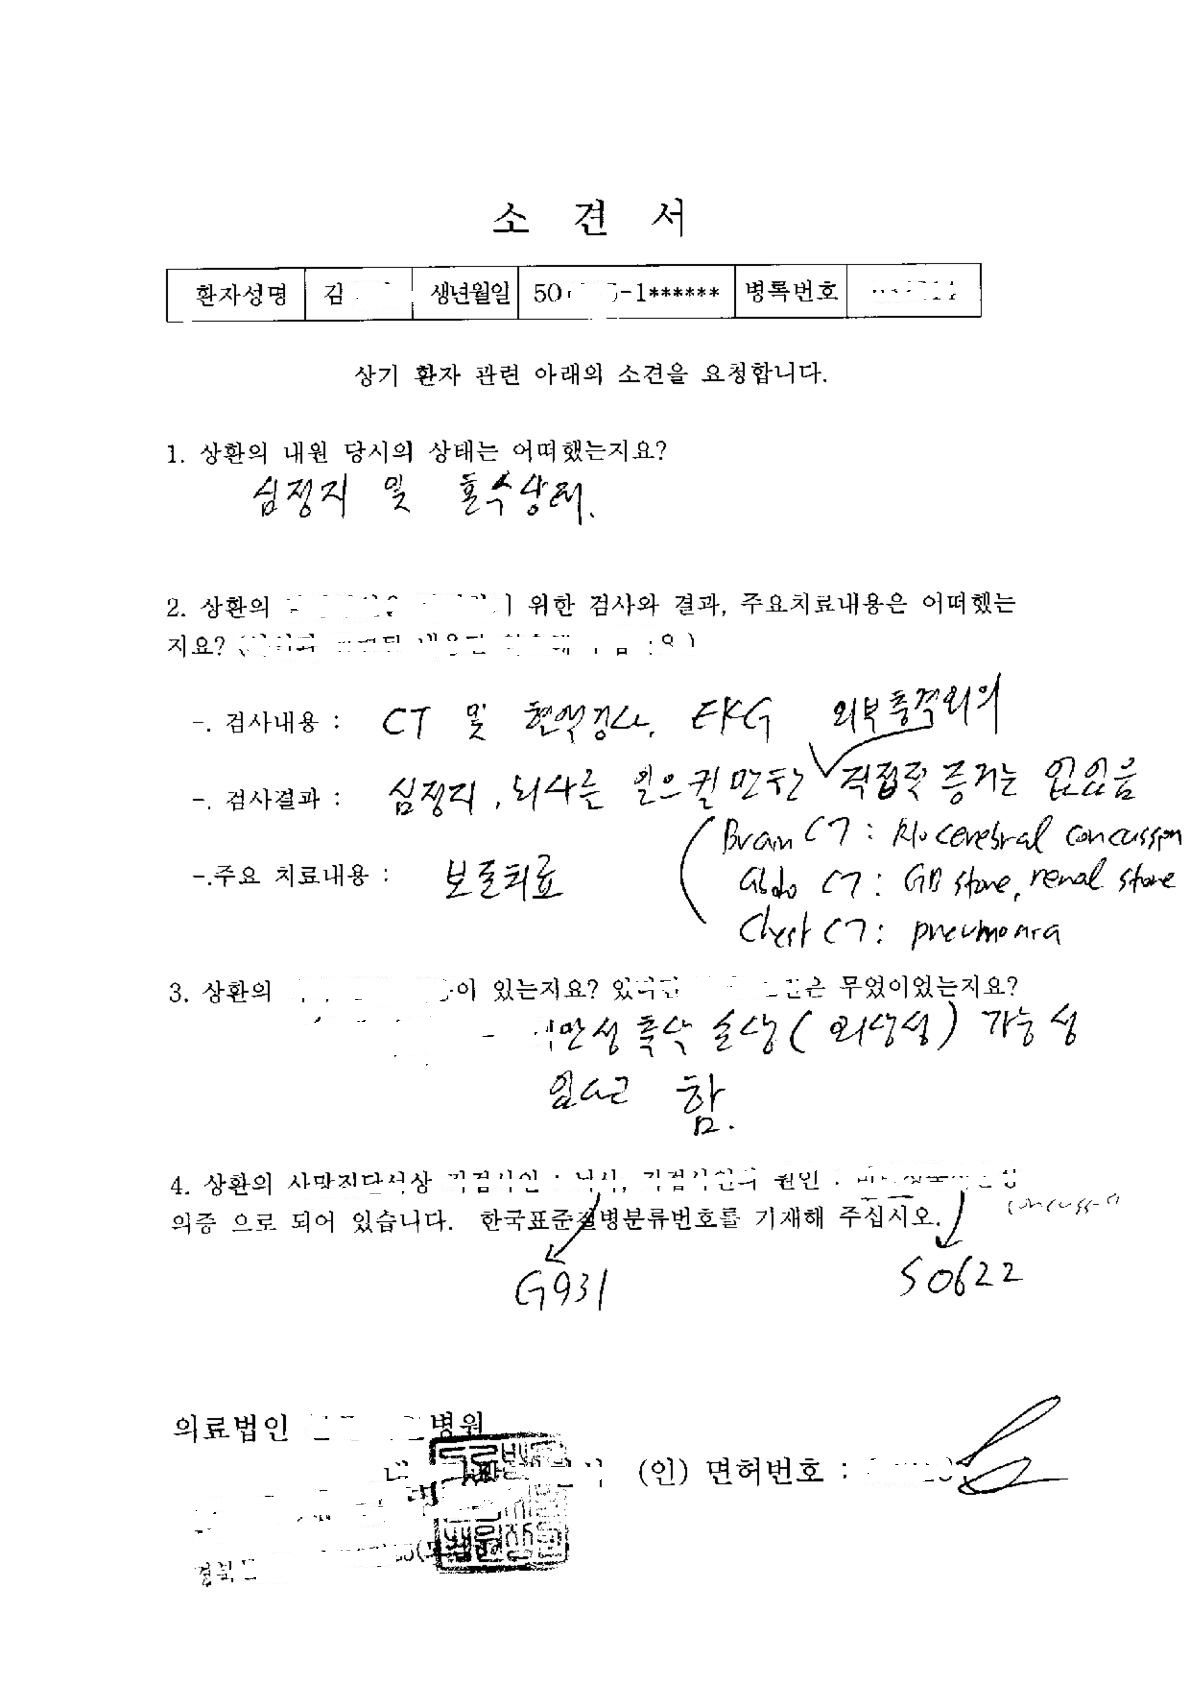 소 견 서
환자성명 김 생년월일 50 -1****** 병록번호
상기 환자 관련 아래의 소견을 요청합니다.
1. 상환의 내원 당시의 상태는 어떠했는지요?
심정지 및 혼수상태.
2. 상환의 위한 검사와 결과, 주요치료내용은 어떠했는
지요?
-. 검사내용 : CT 및 혈액검사, EKG 외부충격외의
-. 검사결과 : 심정지, 뇌사를 일으킬만한 직접적 증거는 없었음
Brain CT : R/o cerebral concussion
-.주요 치료내용 : 보존치료
Abdo CT : GB stone, renal stone
Chest CT : pneumonia
3. 상환의 이 있는지요? 은 무었이었는지요?
- 미만성 축삭 손상 (외상성) 가능성
있다고 함.
4. 상환의 사망진단서상 직접사인 : 뇌사, 직접사인의 원인 :
의증 으로 되어 있습니다. 한국표준질병분류번호를 기재해 주십시오.
G931 S0622
의료법인 병원
(인) 면허번호 :
경북